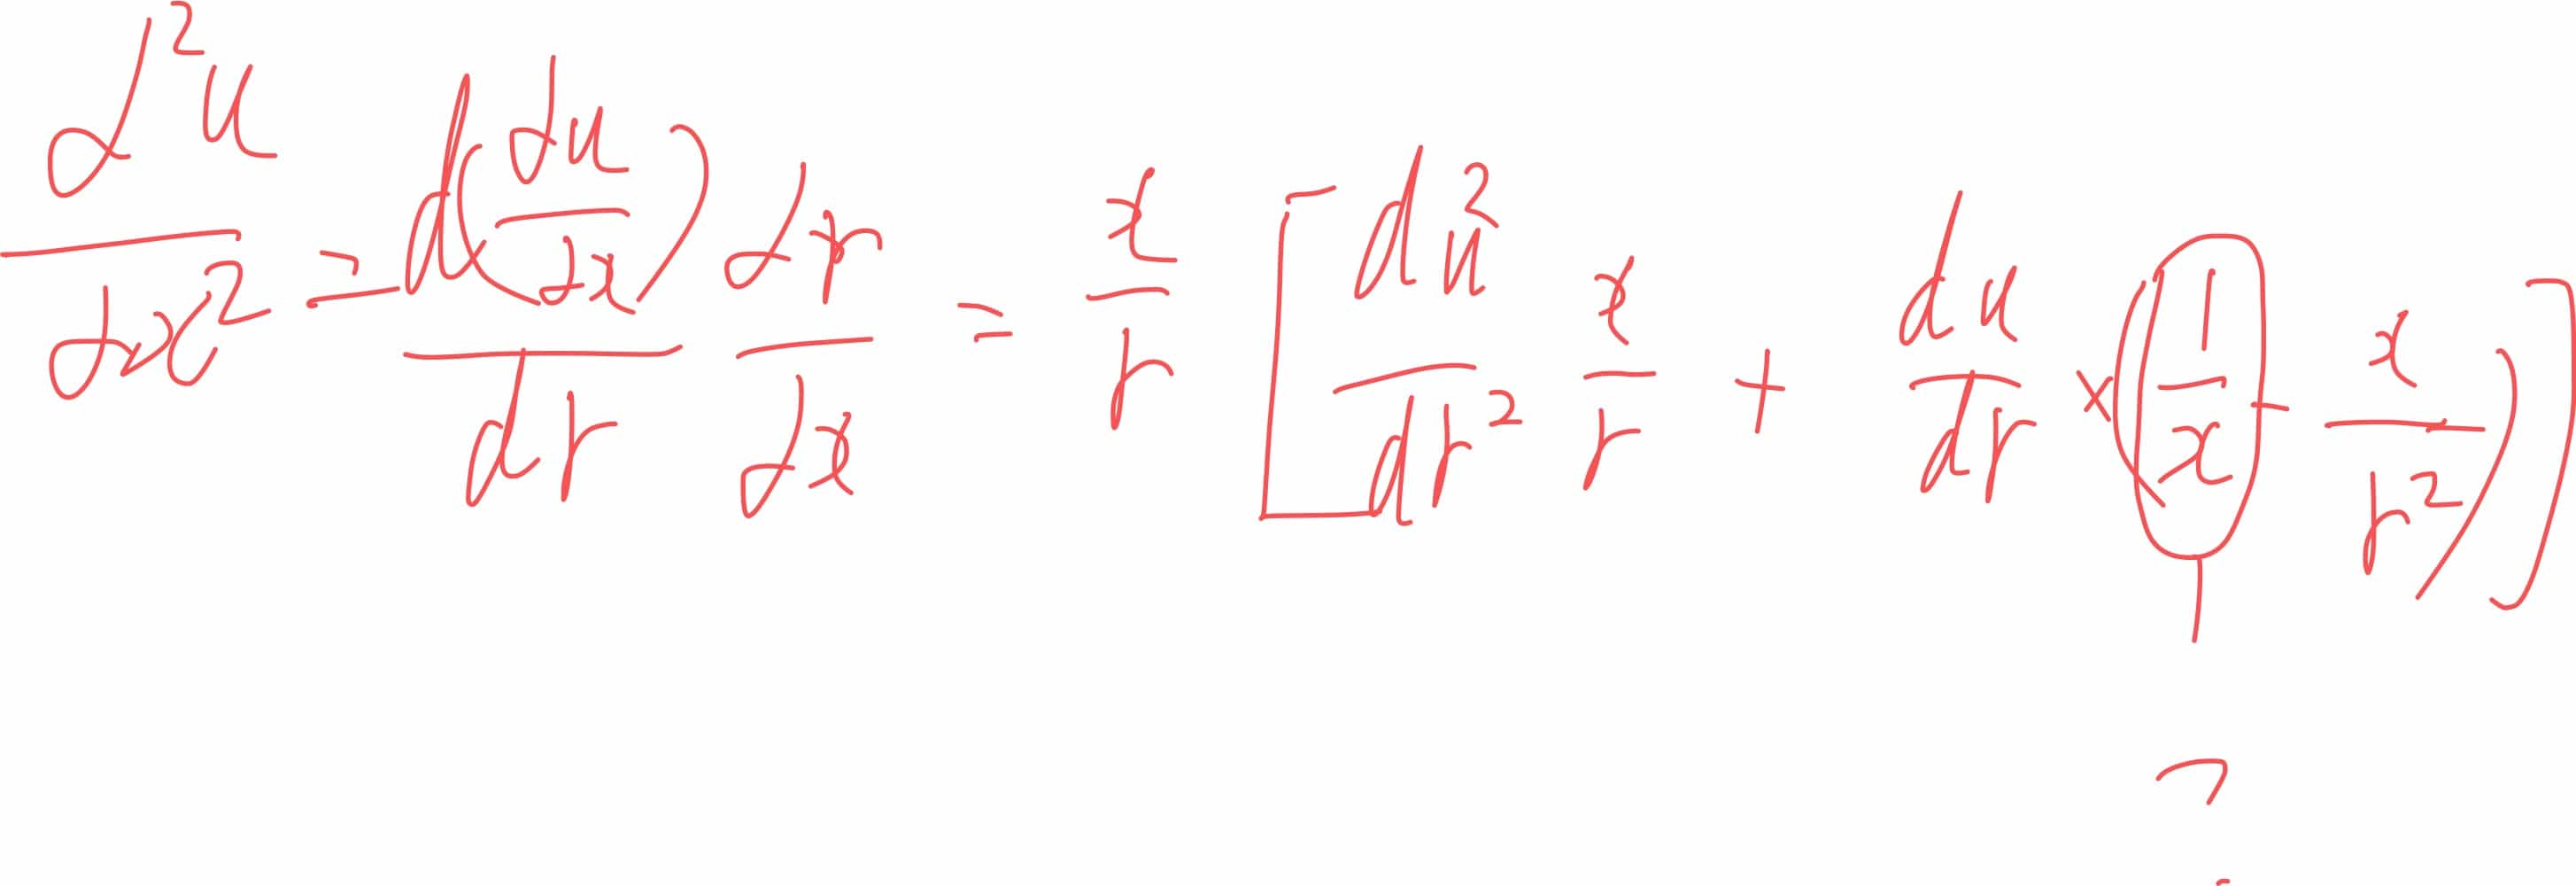 ∂²u/∂x² = d(∂u/∂x)/dr ∂r/∂x = x/r [d²u/dr² x/r + du/dr × (1/x - x/r²)]
?